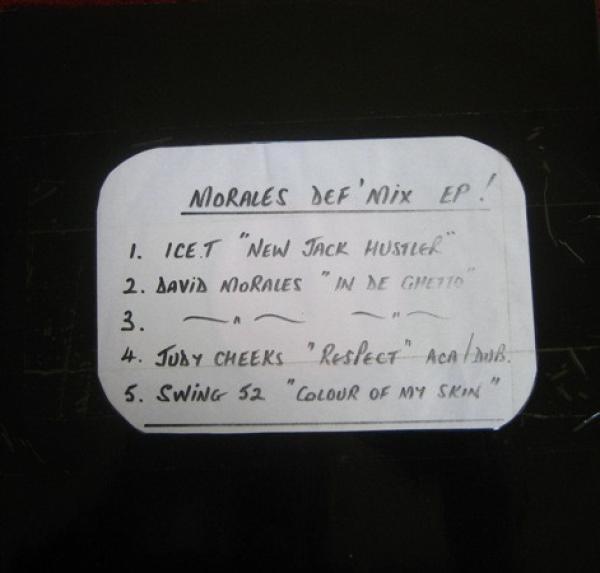 MORALES DEF 'MIX EP!
1. ICE.T "NEW JACK HUSTLER"
2. DAVID MORALES "IN DE GHETTO"
3. 〃 〃
4. JUDY CHEEKS "RESPECT" ACA/DUB.
5. SWING 52 "COLOUR OF MY SKIN"